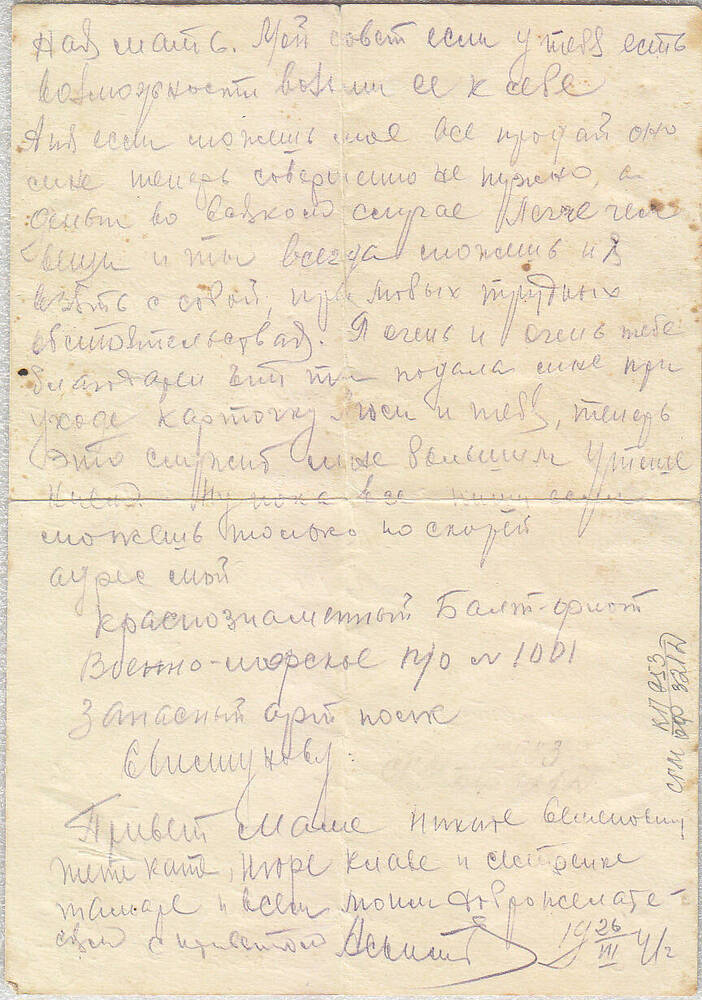 ная мать. Мой совет если у тебя есть
возможности возьми ее к себе
Аня если можешь мое все продай оно
мне теперь совершенно не нужно, а
деньги во всяком случае Легче чем
вещи и ты всегда сможешь их
взять с собой, при любых трудных
обстоятельствах. Я очень и очень тебе
благодарен что ты подала мне при
уходе карточку Люси и тебя, теперь
это служит мне большим утеше
нием. Ну пока все пиши если
можешь только по скорей
адрес мой
Краснознаменный Балт-флот
Военно-морское п/о № 1001
Запасный арт полк
Привет маме Никите Семеновичу
тети Кате, Нюре Клаве и сестренке
тамаре и всем моим доброжелате-
лям с приветом
19 26/VI 41 г
КП 953
321 Д